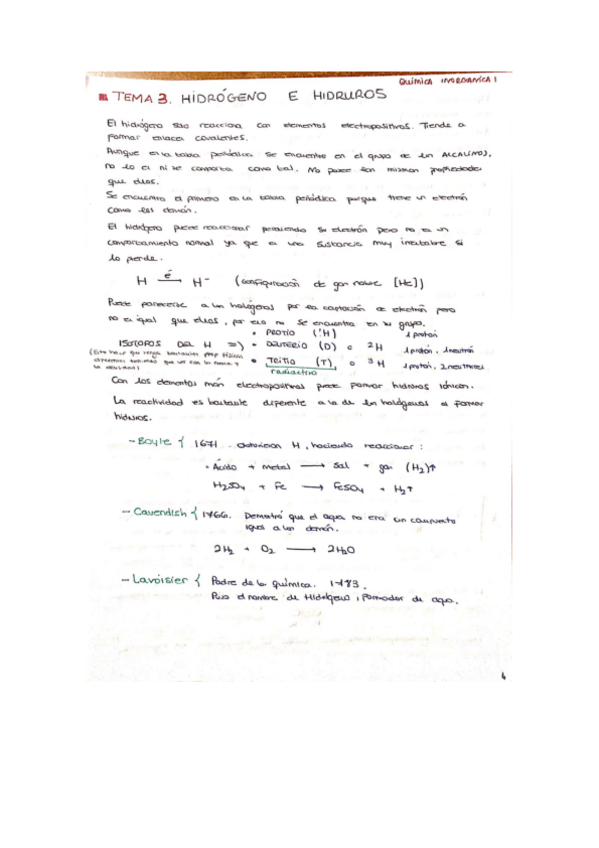 QUÍMICA INORGÁNICA I
TEMA 3. HIDRÓGENO E HIDRUROS
El hidrógeno solo reacciona con elementos electropositivos. Tiende a
formar enlaces covalentes.
Aunque en la tabla periódica se encuentra en el grupo de los ALCALINOS,
no lo es ni se comporta como tal. No posee las mismas propiedades
que ellos.
Se encuentra el primero en la tabla periódica porque tiene un electrón
como los demás.
El hidrógeno puede reaccionar perdiendo su electrón pero no es un
comportamiento normal ya que es una sustancia muy inestable si
lo pierde.
H —é→ H⁻ (configuración de gas noble [He])
Puede parecerse a los halógenos por la captación de electrón pero
no es igual que ellos, por eso no se encuentra en su grupo.
• PROTIO (¹H) 1 protón
ISÓTOPOS DEL H ⇒ • DEUTERIO (D) o ²H 1 protón, 1 neutrón
(Esto hace que tenga bastantes prop. físicas
• TRITIO (T) o ³H 1 protón, 2 neutrones
la densidad)
radiactivo
Con los elementos más electropositivos puede formar hidruros iónicos.
La reactividad es bastante diferente a la de los halógenos al formar
hidruros.
- Boyle { 1671. obtuvieron H, haciendo reaccionar:
• Ácido + metal → sal + gas (H₂)↑
H₂SO₄ + Fe → FeSO₄ + H₂↑
- Cavendish { 1766. Demostró que el agua no era un compuesto
igual a los demás.
2H₂ + O₂ → 2H₂O
- Lavoisier { Padre de la química. 1783.
Puso el nombre de Hidrógeno, formador de agua.